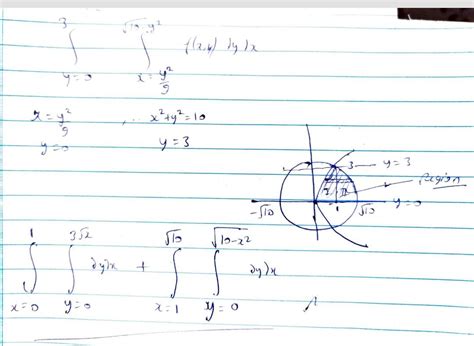 ∫_{y=0}^{3} ∫_{x=y²/9}^{√10-y²} f(x,y) dydx
x = y²/9 , .. x²+y²=10
y=0 y=3
3 — y=3
Region
-√10 1 √10 y=0
∫_{x=0}^{1} ∫_{y=0}^{3√x} dydx + ∫_{x=1}^{√10} ∫_{y=0}^{√10-x²} dydx